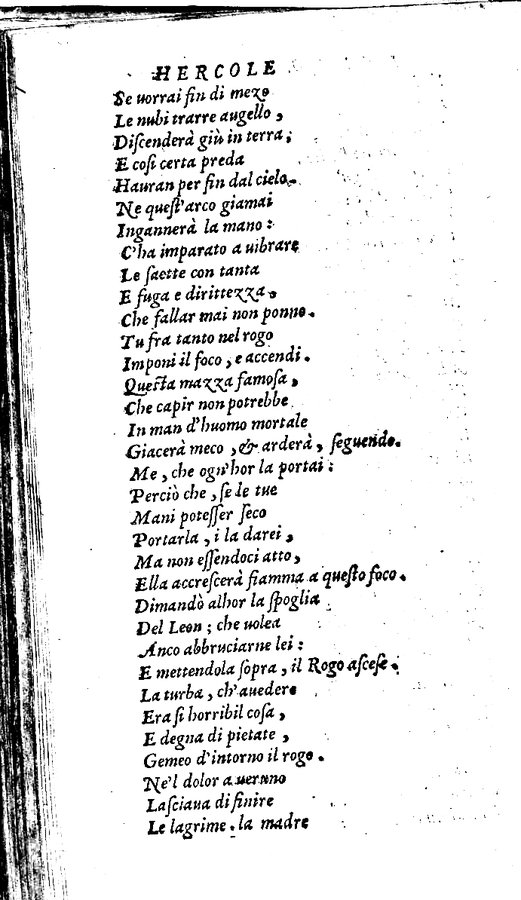 HERCOLE
Se uorrai fin di mezo
Le nubi trarre augello,
Diſcenderà giù in terra;
E coſi certa preda
Hauran per fin dal cielo.
Ne queſt'arco giamai
Ingannerà la mano:
C'ha imparato a uibrare
Le ſaette con tanta
E fuga e dirittezza.
Che fallar mai non ponno.
Tu fra tanto nel rogo
Imponi il foco, e accendi.
Queſta mazza famoſa,
Che capir non potrebbe
In man d'huomo mortale
Giacerà meco, & arderà, ſeguendo.
Me, che ogn'hor la portai:
Perciò che, ſe le tue
Mani poteſſer ſeco
Portarla, i la darei,
Ma non eſſendoci atto,
Ella accreſcerà fiamma a queſto foco.
Dimandò alhor la ſpoglia
Del Leon; che uolea
Anco abbruciarne lei:
E mettendola ſopra, il Rogo aſceſe.
La turba, ch'auedere
Era ſi horribil coſa,
E degna di pietate,
Gemeo d'intorno il rogo.
Ne'l dolor a ueruno
Laſciaua di finire
Le lagrime. la madre